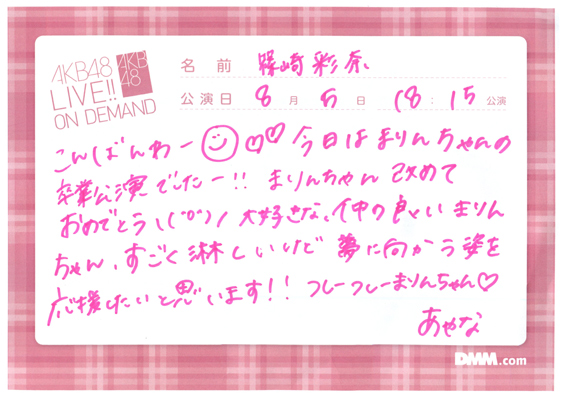 AKB48
LIVE!!
ON DEMAND
AKB
48
名前 篠崎彩奈
公演日 8月5日 18:15公演
こんばんわー 今日はまりんちゃんの
卒業公演でしたー!! まりんちゃん改めて
おめでとう\(°▽°)/ 大好きな、仲の良いまりん
ちゃん、すごく淋しいけど 夢に向かう姿を
応援したいと思います!! フレーフレーまりんちゃん♡
あやな
DMM.com